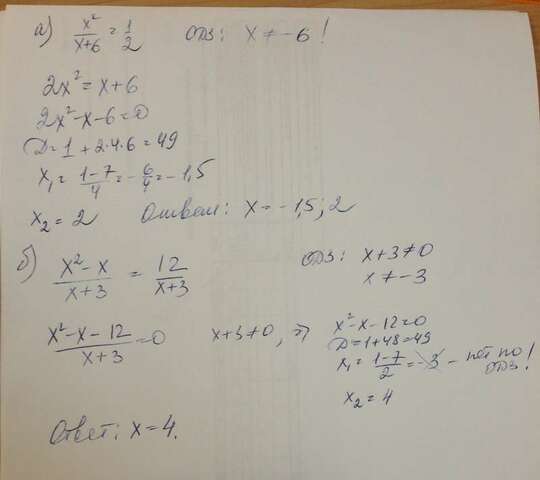 а) x²/(x+6) = 1/2   ОДЗ: x ≠ -6!
2x² = x+6
2x²-x-6=0
D=1+2·4·6=49
x₁ = (1-7)/4 = -6/4 = -1,5
x₂ = 2   Ответ: x = -1,5; 2
б) (x²-x)/(x+3) = 12/(x+3)   ОДЗ: x+3≠0
x ≠ -3
(x²-x-12)/(x+3) = 0   x+3≠0, ⇒ x²-x-12=0
D=1+48=49
x₁ = (1-7)/2 = -3 - нет по ОДЗ!
x₂ = 4
Ответ: x=4.